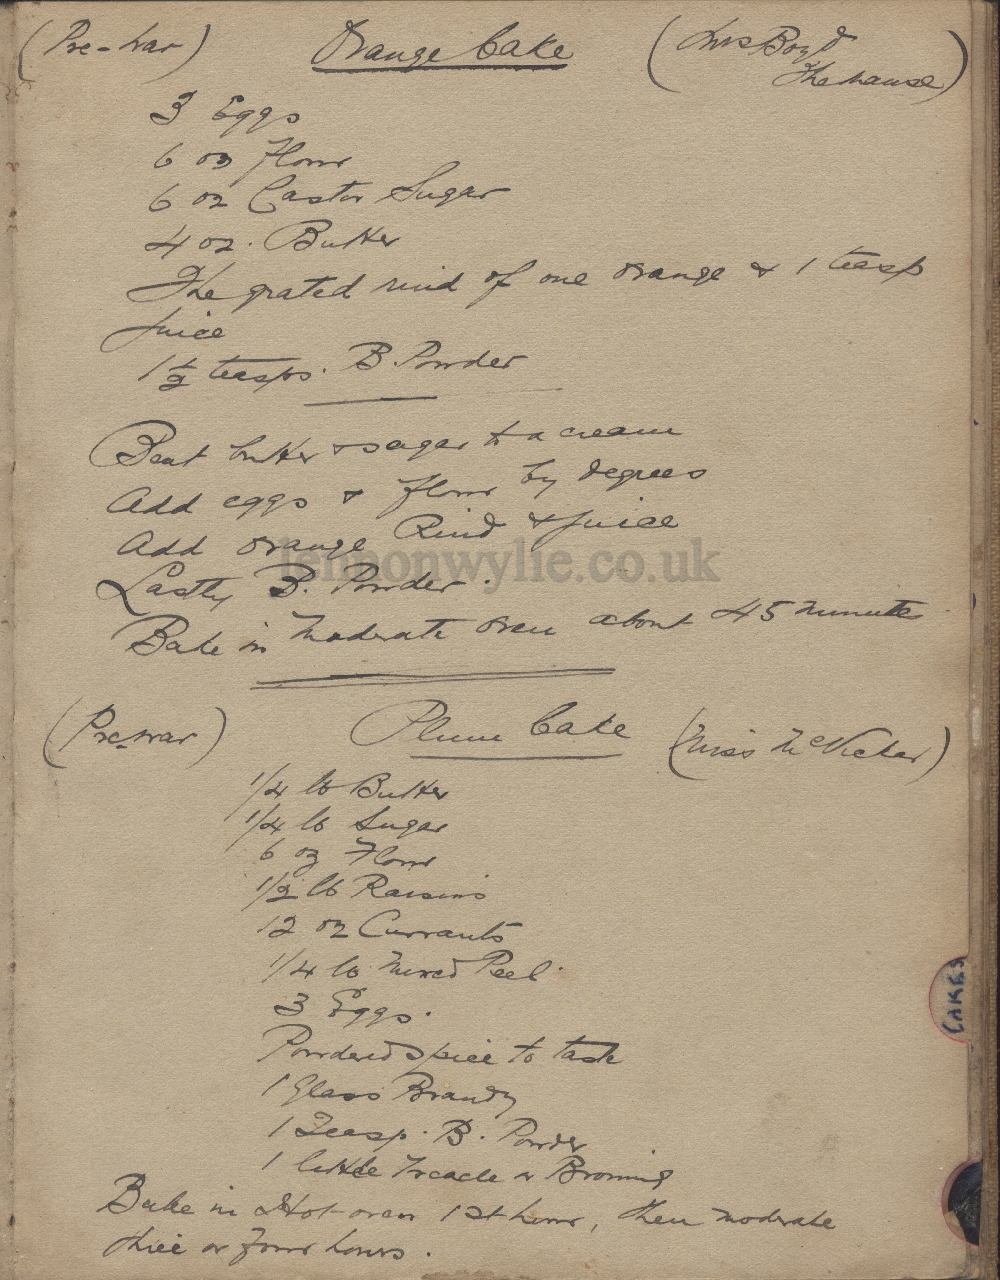 (Pre-war) Orange Cake (Mrs Boyd
The Manse)
3 Eggs
6 oz Flour
6 oz Castor Sugar
4 oz. Butter
The grated rind of one orange & 1 teasp
juice
1½ teasps. B. Powder
Beat butter & sugar to a cream
Add eggs & flour by degrees
Add orange Rind & juice
lennonwylie.co.uk
Lastly B. Powder.
Bake in moderate oven about 45 minutes
(Pre-war) Plum Cake (Miss McVicker)
1/4 lb Butter
1/4 lb Sugar
6 oz Flour
1/2 lb Raisins
12 oz Currants
1/4 lb Mixed Peel.
3 Eggs.
Powdered spice to taste
1 Glass Brandy
1 Teasp. B. Powder
1 little Treacle or Browning
CAKES
Bake in Hot oven 1st hour, then moderate
three or four hours.